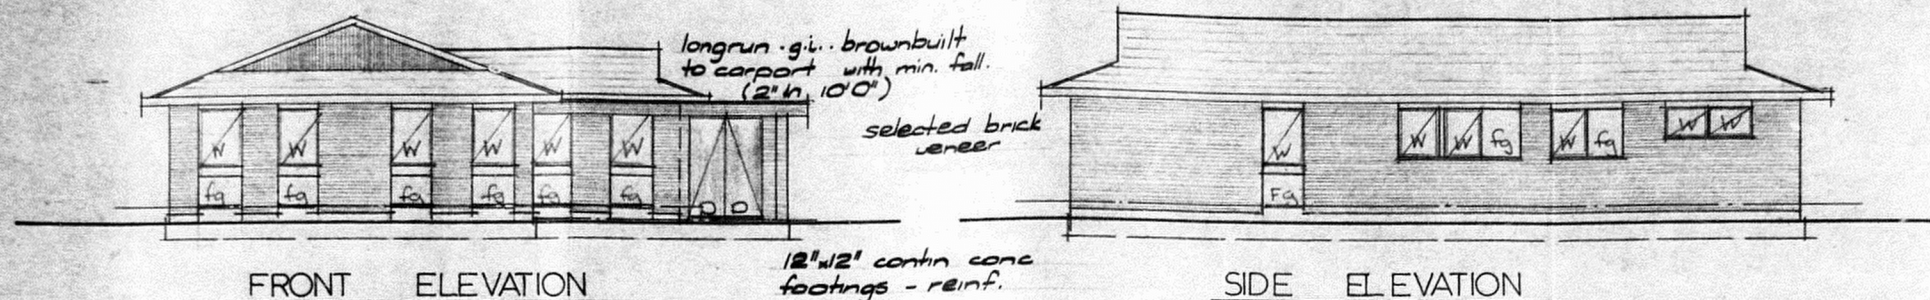 longrun .g.i.. brownbuilt
to carport with min. fall.
(2" in 10'0")
selected brick
veneer
W W W W W W
fg fg fg fg fg fg
12"x12" contin conc
footings - reinf.
FRONT ELEVATION
W W W fg W fg W W
Fg
SIDE ELEVATION